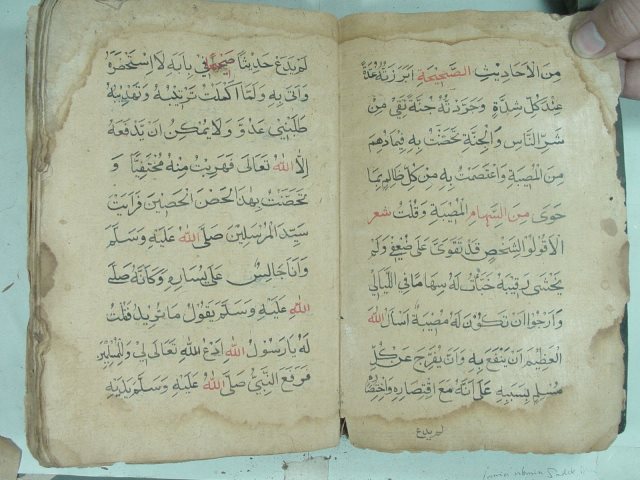 مِنَ الْاَحَادِيْثِ الصَّحِيْحَةِ اَبْرَزْتُهُ عُدَّةً
عِنْدَ كُلِّ شِدَّةٍ وَجَرَّدْتُهُ جُنَّةً تَقِيْ مِنْ
شَرِّ النَّاسِ وَالْجِنَّةِ تَحَصَّنْتُ بِهِ فِيْمَا دَهَمَ
مِنَ الْمُصِيْبَةِ وَاعْتَصَمْتُ بِهِ مِنْ كُلِّ ظَالِمٍ بِمَا
حَوَى مِنَ السِّهَامِ الْمُصِيْبَةِ وَقُلْتُ شعر
اَلَا قُوْلُوْا لِشَخْصٍ قَدْ تَقَوَّى عَلَى ضُعْفِيْ وَلَمْ
يَخْشَى رَقِيْبَهُ خَبَأْتُ لَهُ سِهَامًا فِي اللَّيَالِيْ
وَاَرْجُوْا اَنْ تَكُوْنَ لَهُ مُصِيْبَةً اَسْاَلُ اللهَ
الْعَظِيْمَ اَنْ يَنْفَعَ بِهِ وَاَنْ يُفَرِّجَ عَنْ كُلِّ
مُسْلِمٍ بِسَبَبِهِ عَلَى اَنَّهُ مَعَ اقْتِصَارِهِ وَاخْتِصَارِهِ
لم يدع
لَمْ يَدَعْ حَدِيْثًا صَحِيْحًا فِيْ بَابِهِ اِلَّا اسْتَحْضَرَهُ
وَاَتَى بِهِ وَلَمَّا اَكْمَلْتُ تَرْتِيْبَهُ وَتَهْذِيْبَهُ
طَلَبَنِيْ عَدُوٌّ وَلَا يُمْكِنُ اَنْ يَدْفَعَهُ
اِلَّا اللهُ تَعَالَى فَهَرَبْتُ مِنْهُ مُخْتَفِيًا وَ
تَحَصَّنْتُ بِهٰذَا الْحِصْنِ الْحَصِيْنِ فَرَاَيْتُ
سَيِّدَ الْمُرْسَلِيْنَ صَلَّى اللهُ عَلَيْهِ وَسَلَّمَ
وَاَنَا جَالِسٌ عَلَى يَسَارِهِ وَكَاَنَّهُ صَلَّى
اللهُ عَلَيْهِ وَسَلَّمَ يَقُوْلُ مَا تُرِيْدُ فَقُلْتُ
لَهُ يَا رَسُوْلَ اللهِ اُدْعُ اللهَ تَعَالَى لِيْ وَلِلْمُسْلِمِيْنَ
فَرَفَعَ النَّبِيُّ صَلَّى اللهُ عَلَيْهِ وَسَلَّمَ يَدَيْهِ